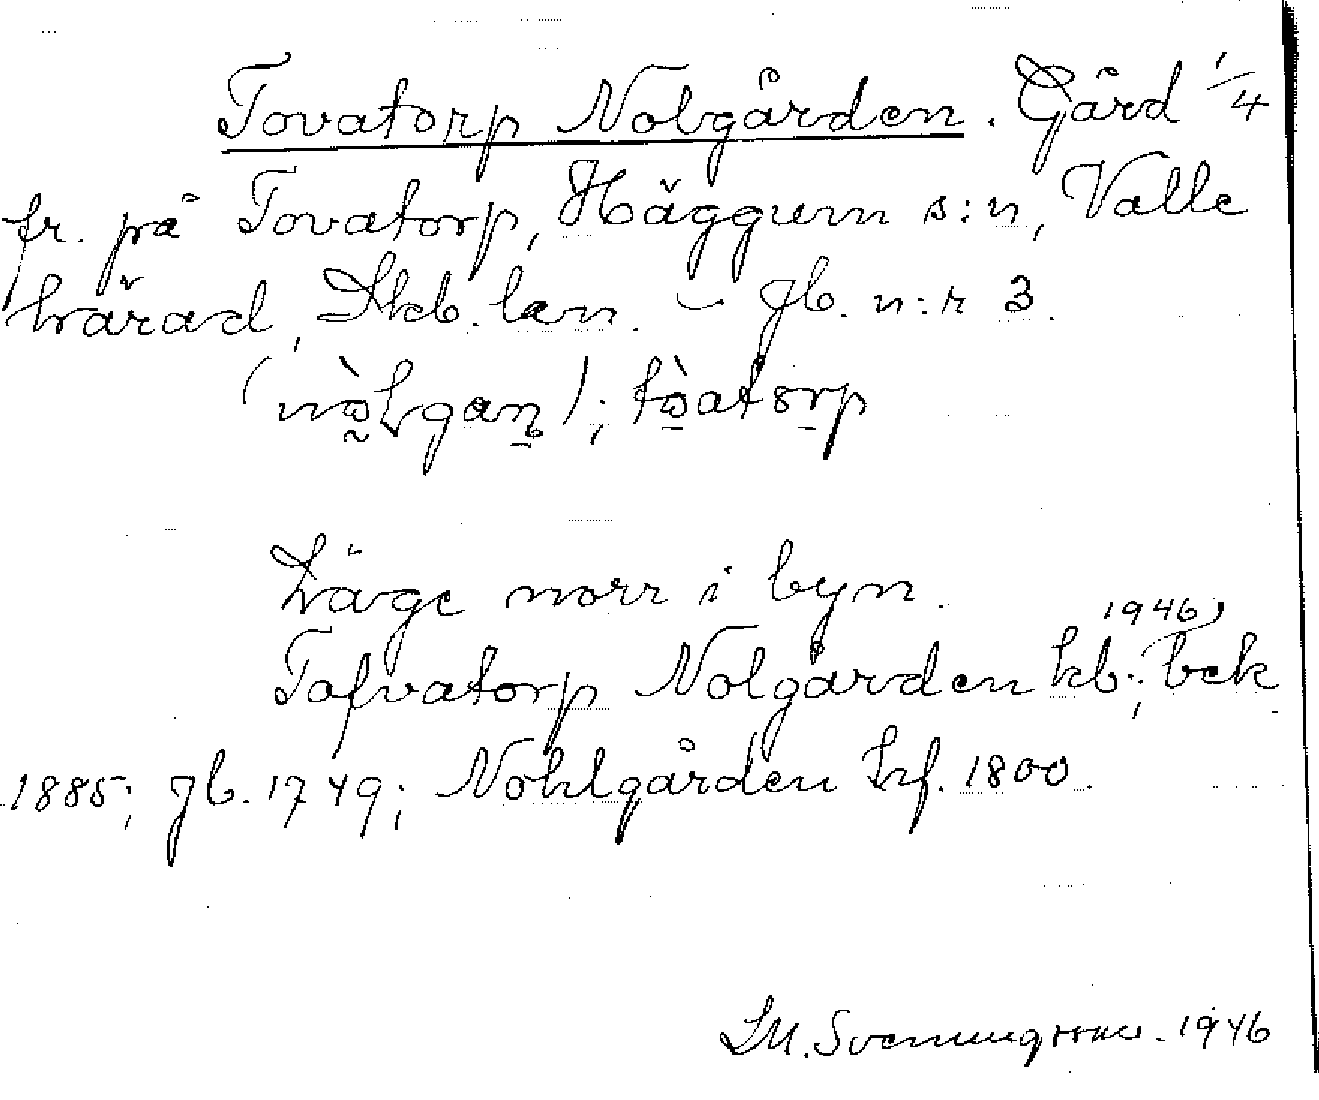 Tovatorp Nolgården. Gård 1/4
fr. på Tovatorp, Häggum s:n, Valle
härad, Skb. län. – Jb. n:r 3.
(nò̰Lgaṉ); tò̱atoṟp
Läge norr i byn.
1946,
Tofvatorp Nolgården kb.; bek
1885; jb. 1749; Nohlgården hf. 1800.
LM. Svenungsson. 1946